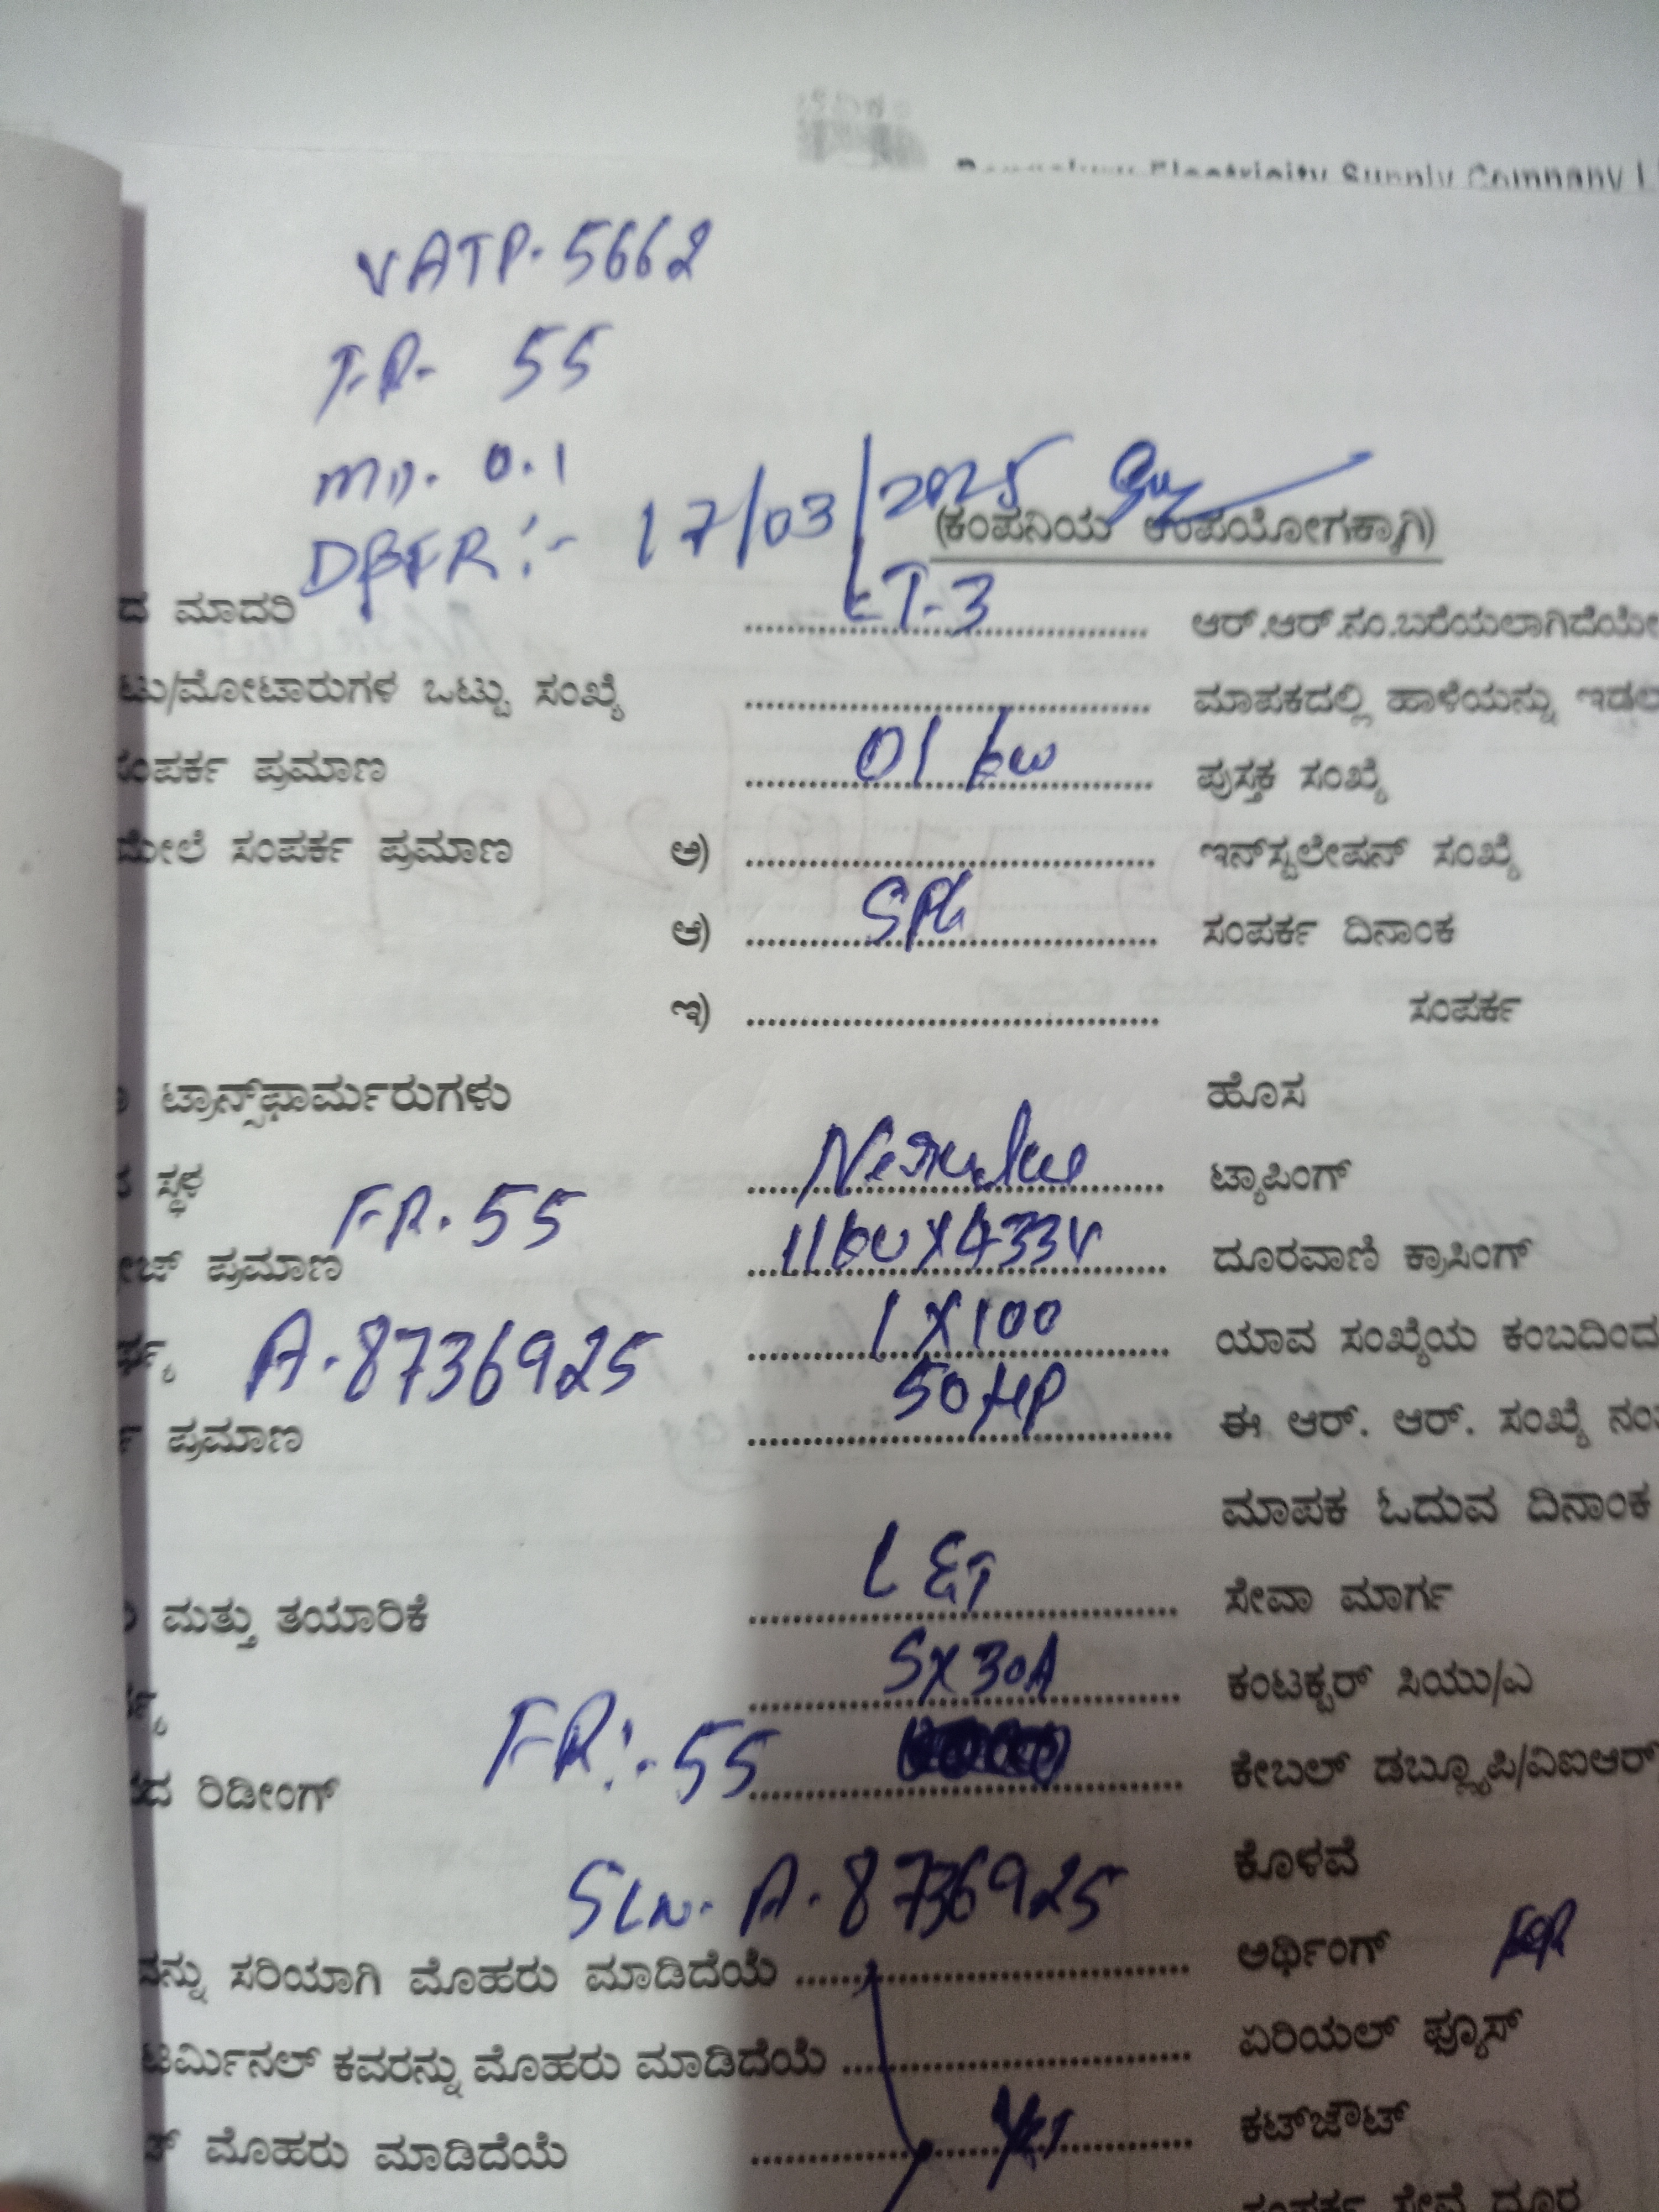 Electricity Supply Company
VATP. 5662
F.R- 55
0.1
DBFR:- 17/03/2025
(ಕಂಪನಿಯ ಉಪಯೋಗಕ್ಕಾಗಿ)
ದ ಮಾದರಿ LT-3 ಆರ್.ಆರ್.ಸಂ.ಬರೆಯಲಾಗಿದೆಯೇ
ಟು/ಮೋಟಾರುಗಳ ಒಟ್ಟು ಸಂಖ್ಯೆ ಮಾಪಕದಲ್ಲಿ ಹಾಳೆಯನ್ನು
ಸಂಪರ್ಕ ಪ್ರಮಾಣ 01 kw ಪುಸ್ತಕ ಸಂಖ್ಯೆ
ಮೇಲೆ ಸಂಪರ್ಕ ಪ್ರಮಾಣ ಅ) ಇನ್‌ಸ್ಟಲೇಷನ್ ಸಂಖ್ಯೆ
ಆ) ಸಂಪರ್ಕ ದಿನಾಂಕ
ಇ) ಸಂಪರ್ಕ
ಟ್ರಾನ್ಸ್‌ಫಾರ್ಮರುಗಳು ಹೊಸ
ಸ್ಥಳ ಟ್ಯಾಪಿಂಗ್
FR. 55
ಪ್ರಮಾಣ 11kv X 433V ದೂರವಾಣಿ ಕ್ರಾಸಿಂಗ್
A. 8736925 1 X 100 ಯಾವ ಸಂಖ್ಯೆಯ ಕಂಬದಿಂದ
ಪ್ರಮಾಣ 50 HP ಈ ಆರ್. ಆರ್. ಸಂಖ್ಯೆ
ಮಾಪಕ ಓದುವ ದಿನಾಂಕ
ಮತ್ತು ತಯಾರಿಕೆ L&T ಸೇವಾ ಮಾರ್ಗ
5X30A ಕಂಟಕ್ಟರ್ ಸಿಯು/ಎ
FR:- 55
ದ ರಿಡೀಂಗ್ ಕೇಬಲ್ ಡಬ್ಲ್ಯೂಪಿ/ವಿಐಆರ್
ಕೊಳವೆ
SLN. A. 8736925
ವನ್ನು ಸರಿಯಾಗಿ ಮೊಹರು ಮಾಡಿದೆಯೆ ಅರ್ಥಿಂಗ್
ಟರ್ಮಿನಲ್ ಕವರನ್ನು ಮೊಹರು ಮಾಡಿದೆಯೆ ಏರಿಯಲ್ ಫ್ಯೂಸ್
ಮೊಹರು ಮಾಡಿದೆಯೆ ಕಟ್‌ಔಟ್